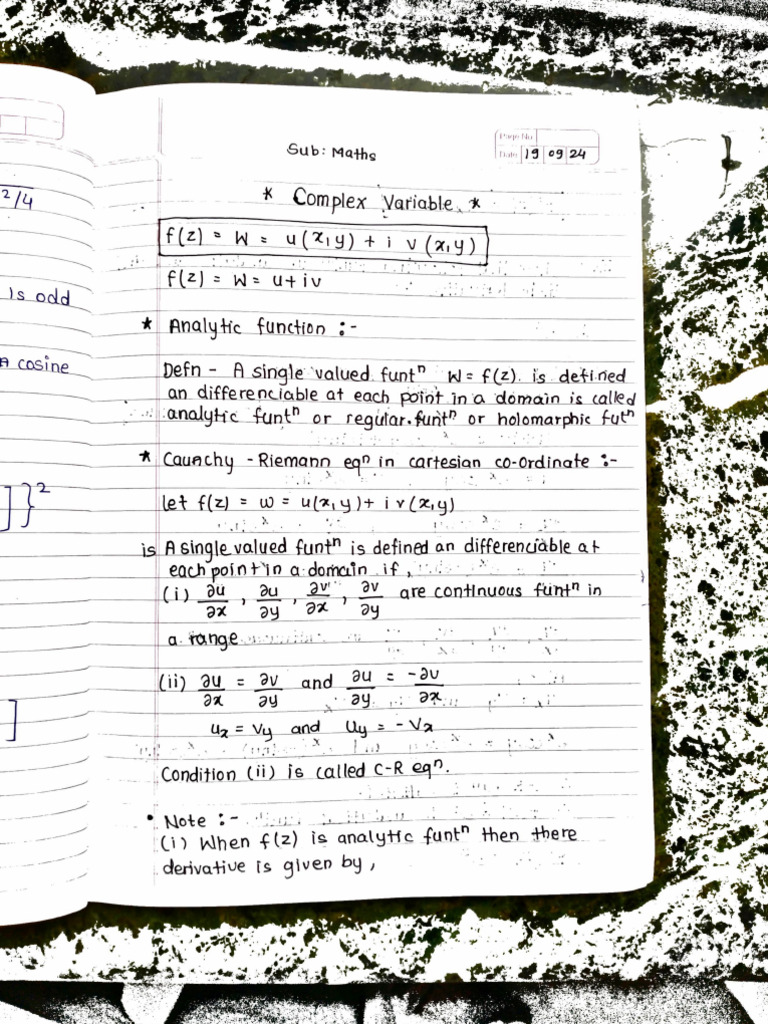 Sub: Maths
Page No.
Date 19 09 24
* Complex Variable *
f(z) = W = u(x,y) + i v(x,y)
f(z) = W = u+iv
* Analytic function :-
Defn - A single valued funtⁿ W = f(z). is defined
an differenciable at each point in a domain is called
analytic funtⁿ or regular.funtⁿ or holomarphic futⁿ
* Caunchy - Riemann eqⁿ in cartesian co-ordinate :-
let f(z) = w = u(x,y) + i v(x,y)
is A single valued funtⁿ is defined an differenciable at
each point in a domain if,
(i) ∂u/∂x , ∂u/∂y , ∂v/∂x , ∂v/∂y are continuous funtⁿ in
a range
(ii) ∂u/∂x = ∂v/∂y and ∂u/∂y = -∂v/∂x
uₓ = Vy and Uy = - Vₓ
Condition (ii) is called C-R eqⁿ.
• Note :-
(i) When f(z) is analytic funtⁿ then there
derivative is given by,
2/4
is odd
A cosine
]}²
]